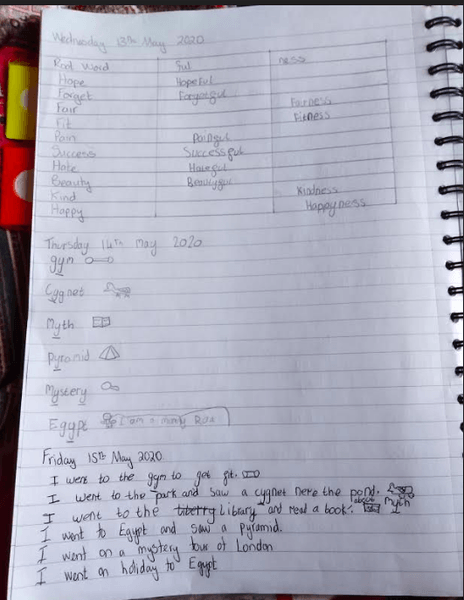 Wednesday 13th May 2020
Root Word ful ness
Hope Hopeful
Forget Forgetful
Fair Fairness
Fit Fitness
Pain Painful
Success Successful
Hate Hateful
Beauty Beautyful
Kind Kidness
Happy Happyness
Thursday 14th May 2020
gym
Cygnet
Myth
Pyramid
Mystery
Egypt I am a
Friday 15th May 2020
I went to the gym to get fit.
I went to the park and saw a cygnet nere the pond.
I went to the Library and read a book. about Myth
I went to Egypt and saw a Pyramid.
I went on a mystery tour of London
I went on holiday to Egypt